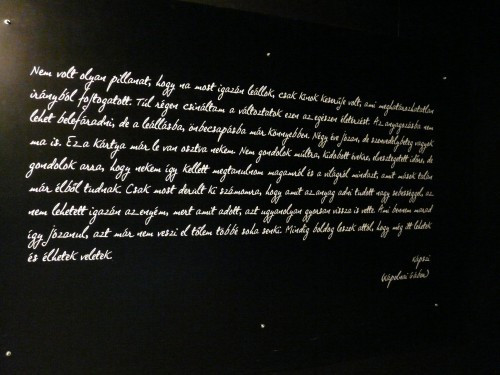 Nem volt olyan pillanat, hogy na most igazán leállok, csak kínok keserűje volt, ami meghatározhatatlan
irányból fojtogatott. Túl régen csináltam a változtatok ezen az egészen életérzést. Az anyagozásba nem
lehet belefáradni, de a leállásba, önbecsapásba már könnyebben. Négy éve józan, de szenvedélybeteg vagyok
ma is. Ez a kártya már le van osztva nekem. Nem gondolok múltra, kidobott évekre, elvesztegetett időre, de
gondolok arra, hogy nekem így kellett megtanulnom magamról és a világról mindazt, amit mások talán
már élből tudnak. Csak most derült ki számomra, hogy amit az anyag adni tudott nagy sebességgel, az
nem lehetett igazán az enyém, mert amit adott, azt ugyanolyan gyorsan vissza is vette. Ami bennem marad
így józanul, azt már nem veszi el tőlem többé soha senki. Mindig boldog leszek attól, hogy még itt lehetek
és élhetek veletek.
Kápszi
(Kápolnai Gábor)